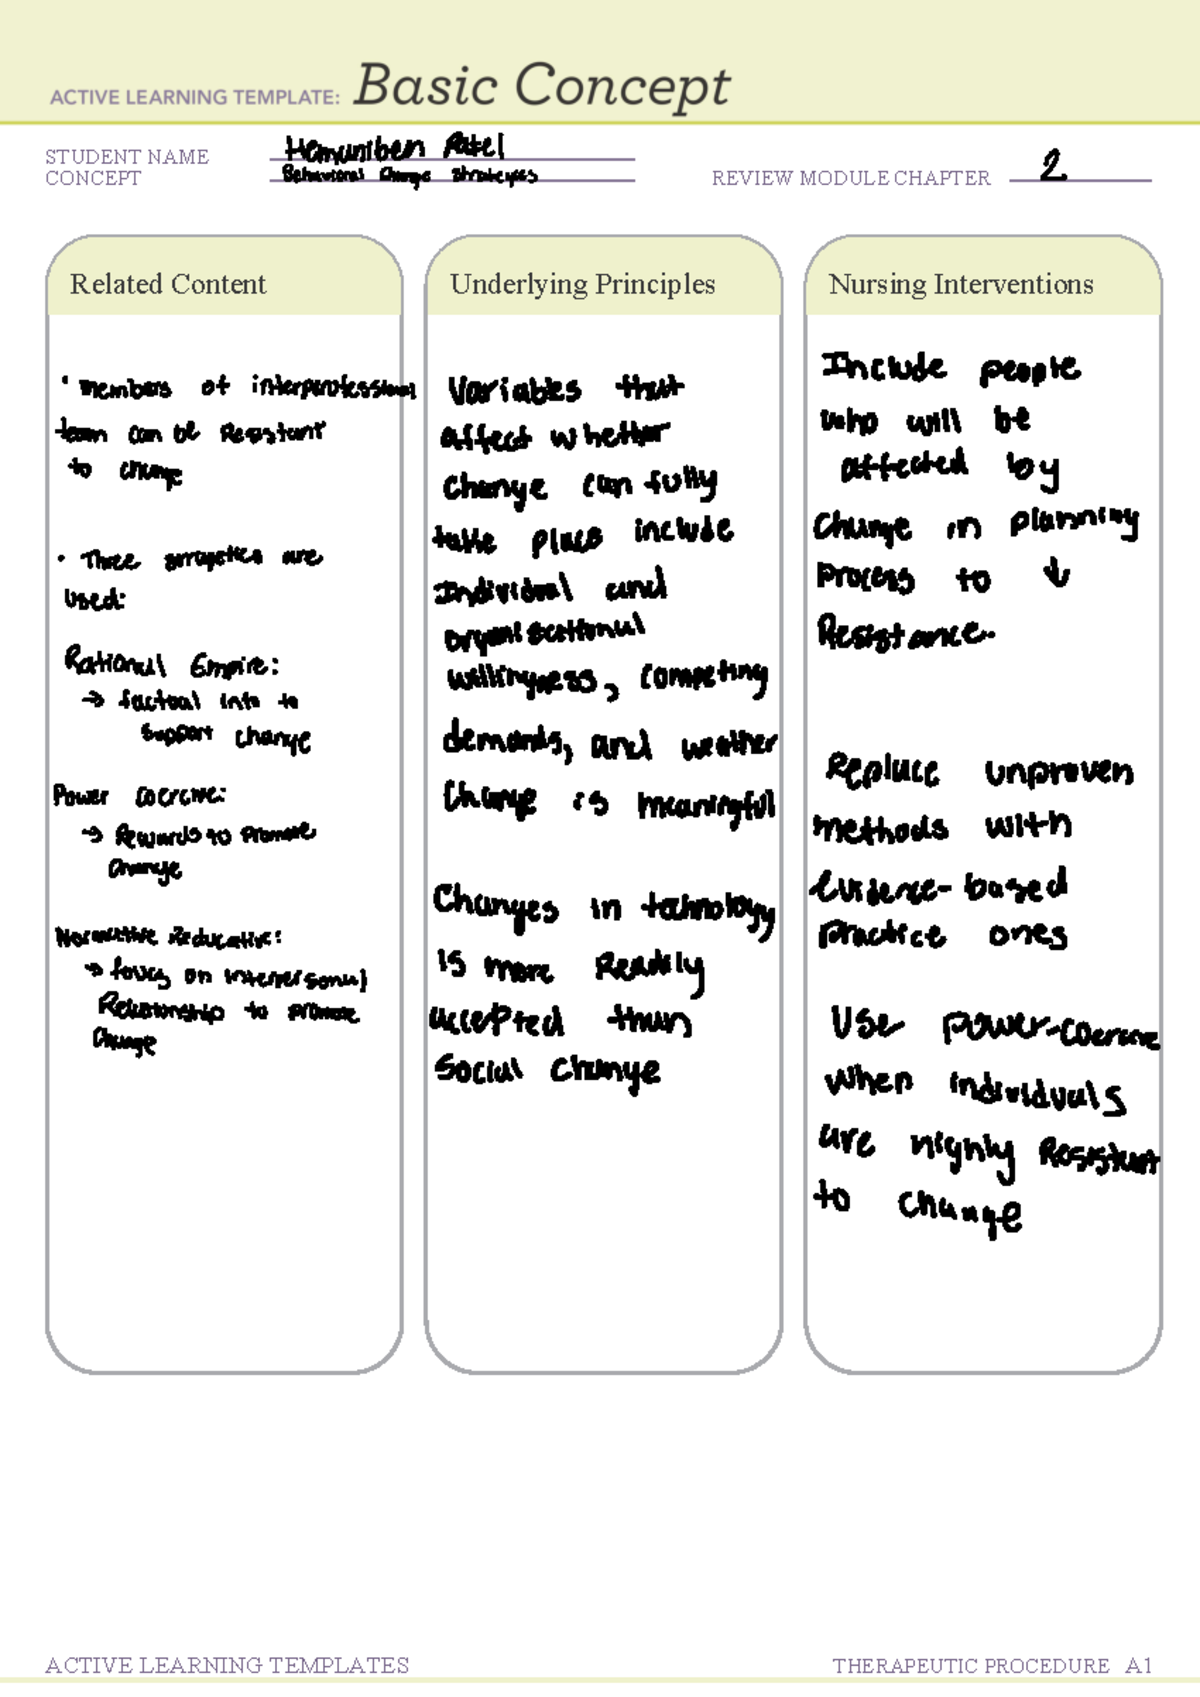 ACTIVE LEARNING TEMPLATE: Basic Concept
STUDENT NAME Hemuniben Patel
CONCEPT Behavioral Change Strategies
REVIEW MODULE CHAPTER 2
Related Content
• members of interprofessional
team can be Resistant
to change
• Three are
used:
Rational Empire:
→ factual info to
support change
Power Coercive:
→ Rewards to Promote
Change
Normative Reducative:
→ focus on interpersonal
Relationship to promote
Change
Underlying Principles
Variables that
affect whether
change can fully
take place include
Individual and
organisational
willingness, competing
demands, and weather
Change is meaningful
Changes in technology
is more Readily
accepted than
Social Change
Nursing Interventions
Include people
who will be
affected by
Change in planning
process to ↓
Resistance.
Replace unproven
methods with
evidence-based
practice ones
Use power-coercive
When individuals
are highly Resistant
to change
ACTIVE LEARNING TEMPLATES
THERAPEUTIC PROCEDURE A1